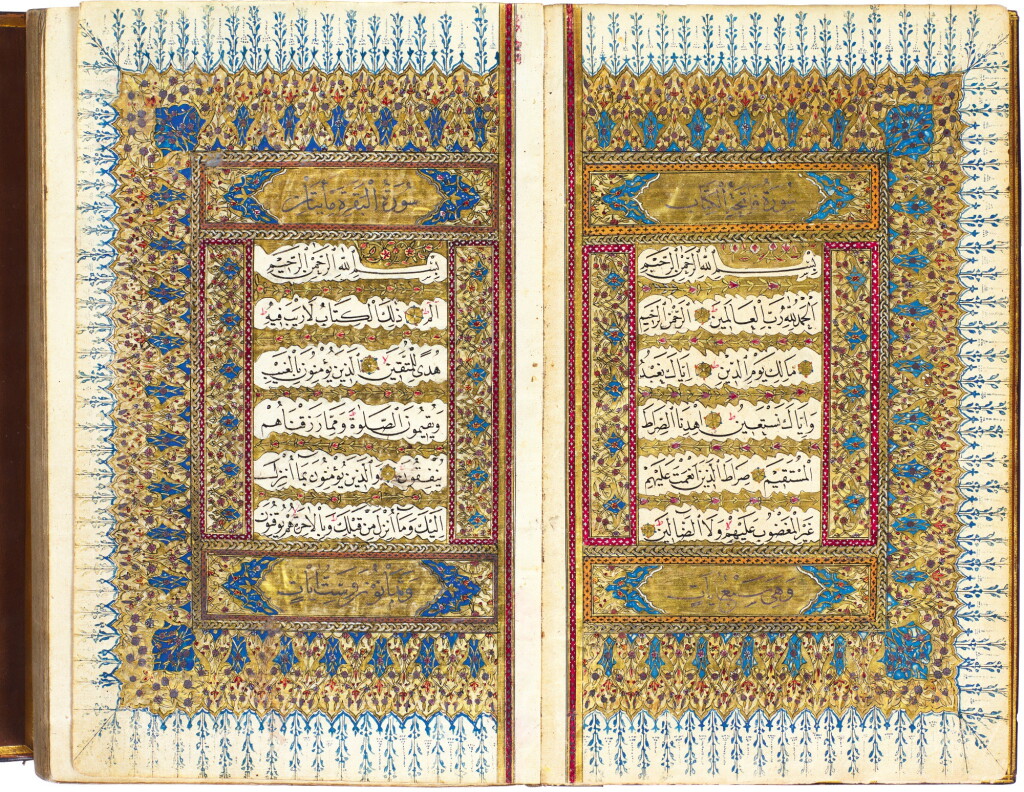 سورة فاتحة الكتاب
بِسْمِ اللهِ الرَّحْمٰنِ الرَّحِيمِ
اَلْحَمْدُ لِلّٰهِ رَبِّ الْعَالَمِينَ الرَّحْمٰنِ الرَّحِيمِ
مَالِكِ يَوْمِ الدِّينِ اِيَّاكَ نَعْبُدُ
وَاِيَّاكَ نَسْتَعِينُ اِهْدِنَا الصِّرَاطَ
الْمُسْتَقِيمَ صِرَاطَ الَّذِينَ اَنْعَمْتَ عَلَيْهِمْ
غَيْرِ الْمَغْضُوبِ عَلَيْهِمْ وَلَا الضَّالِّينَ
وهي سبع ايات
سورة البقرة مائتان
بِسْمِ اللهِ الرَّحْمٰنِ الرَّحِيمِ
الٓمٓ ذٰلِكَ الْكِتَابُ لَا رَيْبَ فِيهِ
هُدًى لِلْمُتَّقِينَ الَّذِينَ يُؤْمِنُونَ بِالْغَيْبِ
وَيُقِيمُونَ الصَّلٰوةَ وَمِمَّا رَزَقْنَاهُمْ
يُنْفِقُونَ وَالَّذِينَ يُؤْمِنُونَ بِمَٓا اُنْزِلَ
اِلَيْكَ وَمَٓا اُنْزِلَ مِنْ قَبْلِكَ وَبِالْاٰخِرَةِ هُمْ يُوقِنُونَ
وثمانون وست ايات